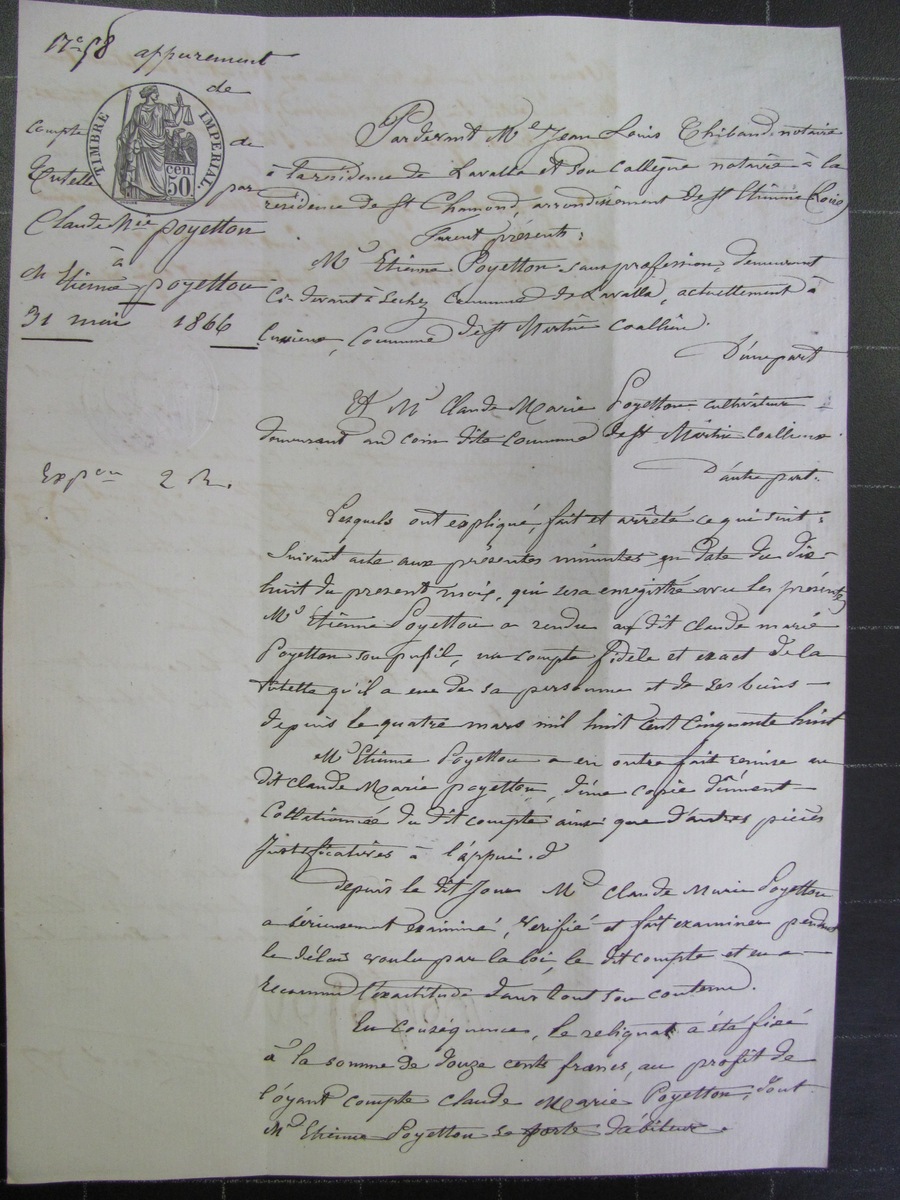 N° 58 appurement
de
TIMBRE IMPÉRIAL.
cen. 50
Compte de
Tutelle par
Claude Mie Poyetton
à
M Etienne Poyetton
31 mai 1866
Expon 2 R.
Pardevant Me Jean Louis Thibaud notaire
à la residence de Lavalla et son collègue notaire à la
residence de St Chamond, arrondissement de St Etienne (Loire)
Furent présents :
Mr Etienne Poyetton sans profession, demeurant
Ci-devant à Lechez Commune de Lavalla, actuellement à
commune de St Martin Coallieu.
D'une part
Et Mr Claude Marie Poyetton cultivateur
demeurant au coin dite Commune de St Martin Coallieux.
D'autre part.
Lesquels ont expliqué, fait et arrêté ce qui suit :
Suivant acte aux présentes minutes en date du dix-
huit du present mois, qui sera enregistré avec les présentes
Mr Etienne Poyetton a rendu au dit Claude marie
Poyetton son pupil, un compte fidèle et exact de la
tutelle qu'il a eue de sa personne et de ses biens
depuis le quatre mars mil huit cent cinquante huit
Mr Etienne Poyetton a en outre fait remise au
dit Claude Marie Poyetton, d'une copie dûment
Collationnée du dit compte ainsi que d'autres pièces
justificatives à l'appui. d
depuis le dit Jour Md Claude Marie Poyetton
a sérieusement examiné, verifié et fait examiner pendant
le délais voulu par la loi, le dit compte et en a
reconnu l'exactitude dans tout son contenu.
En conséquence, le reliquat a été fixé
à la somme de douze cents francs, au profit de
l'oyant compte Claude Marie Poyetton, dont
Md Etienne Poyetton se porte débiteur.